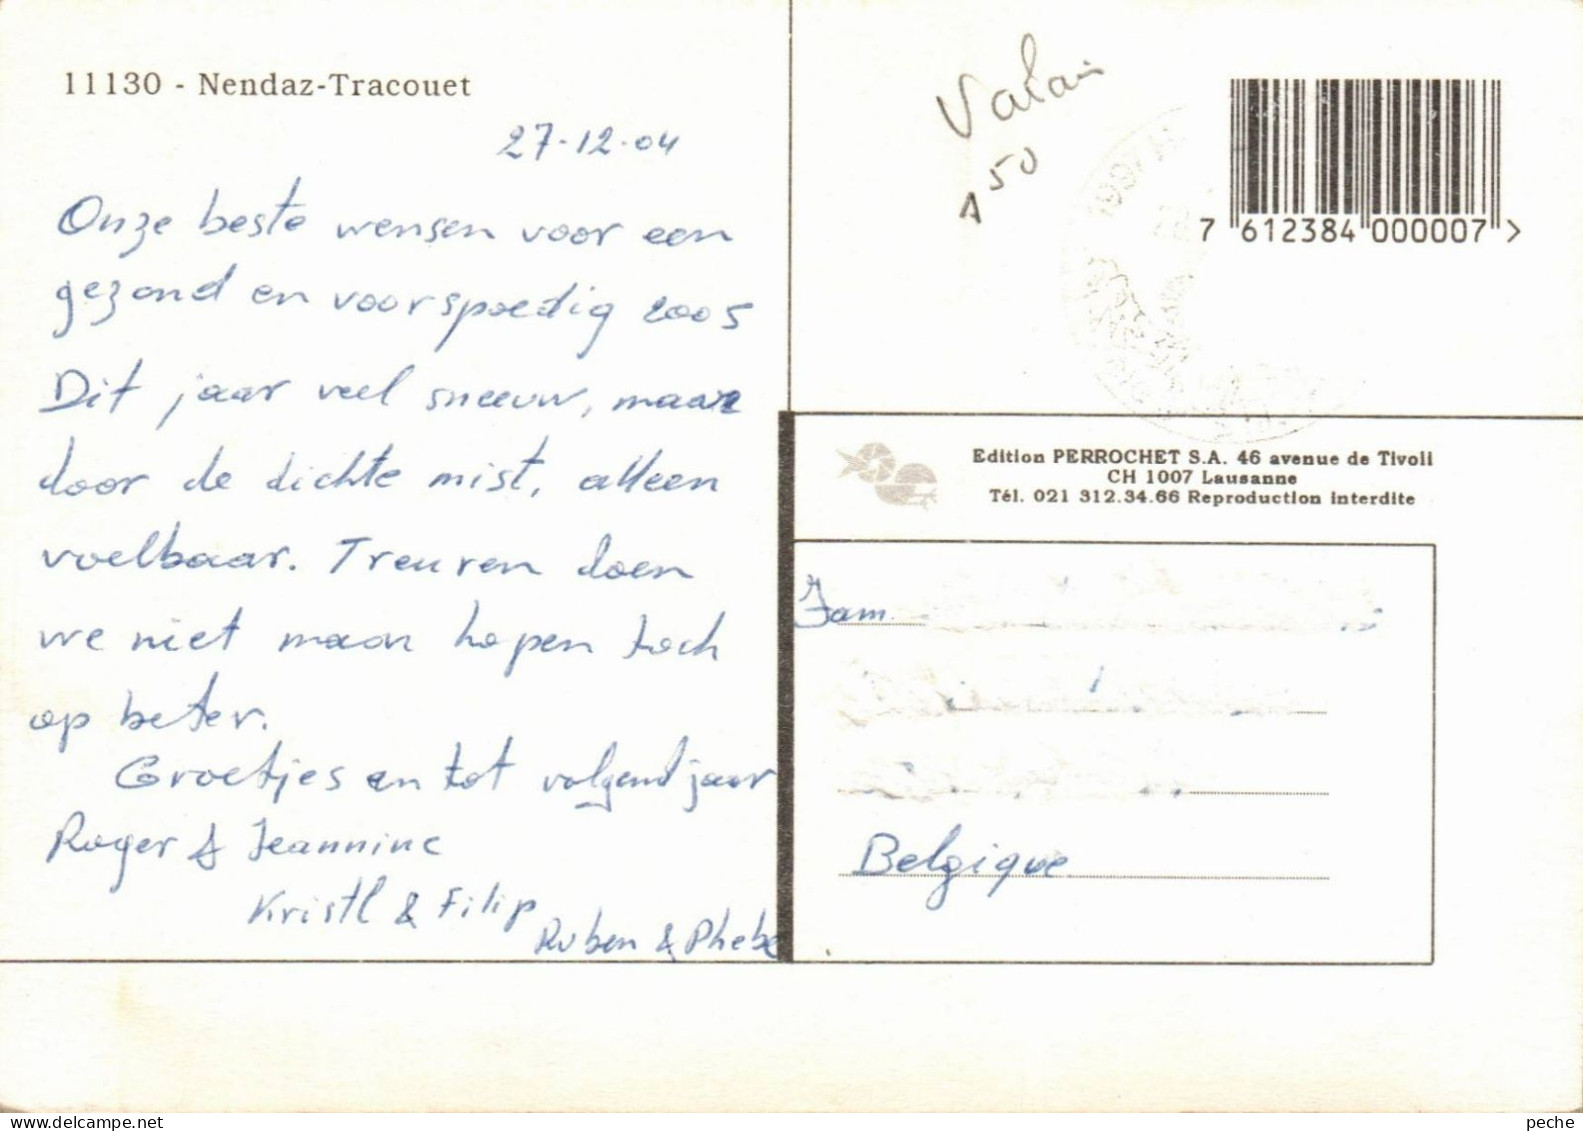 11130 - Nendaz-Tracouet
27-12-04
Onze beste wensen voor een
gezond en voorspoedig 2005
Dit jaar veel sneeuw, maar
door de dichte mist, alleen
voelbaar. Treuren doen
we niet maar hopen toch
op beter.
Groetjes en tot volgend jaar
Roger & Jeannine
Kristl & Filip
Ruben & Phebe
Valais
150
7 612384 000007 >
Edition PERROCHET S.A. 46 avenue de Tivoli
CH 1007 Lausanne
Tél. 021 312.34.66 Reproduction interdite
Fam.
Belgique
peche